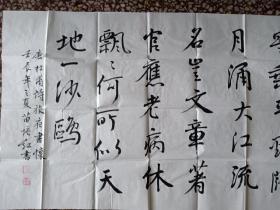 月涌大江流
名豈文章著
官應老病休
飄〻何所似天
地一沙鷗
唐杜甫詩旅夜書懷
壬辰年之夏苗